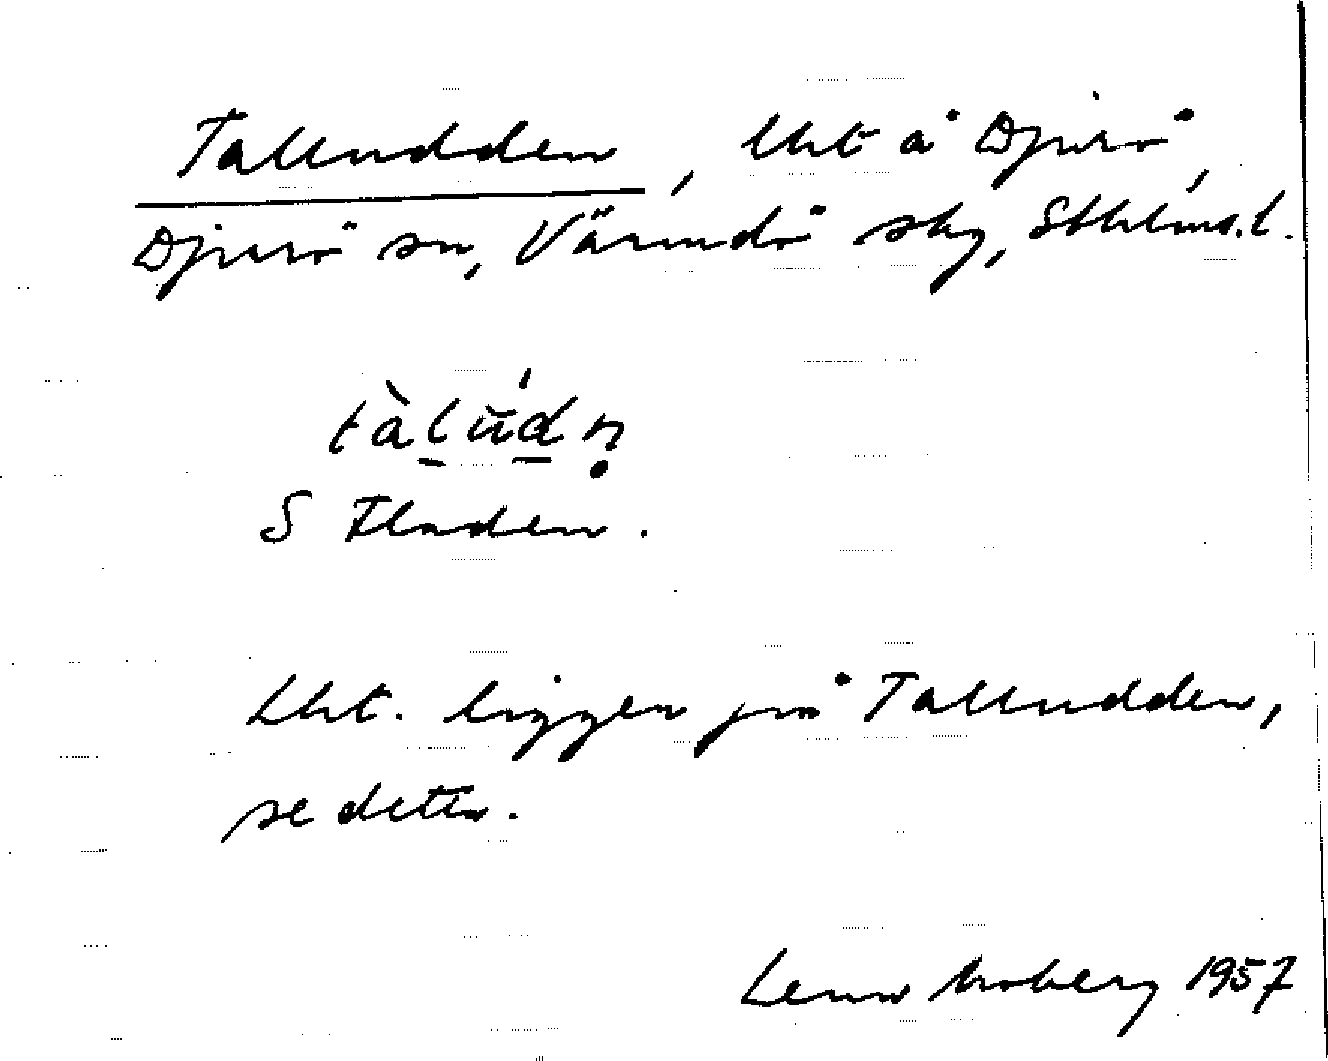 Talludden, lht å Djurö,
Djurö sn, Värmdö skg, Sthlms.l.
tàlúdn̥
S Fladen.
Lht. ligger på Talludden,
se detta.
Lena Moberg 1957